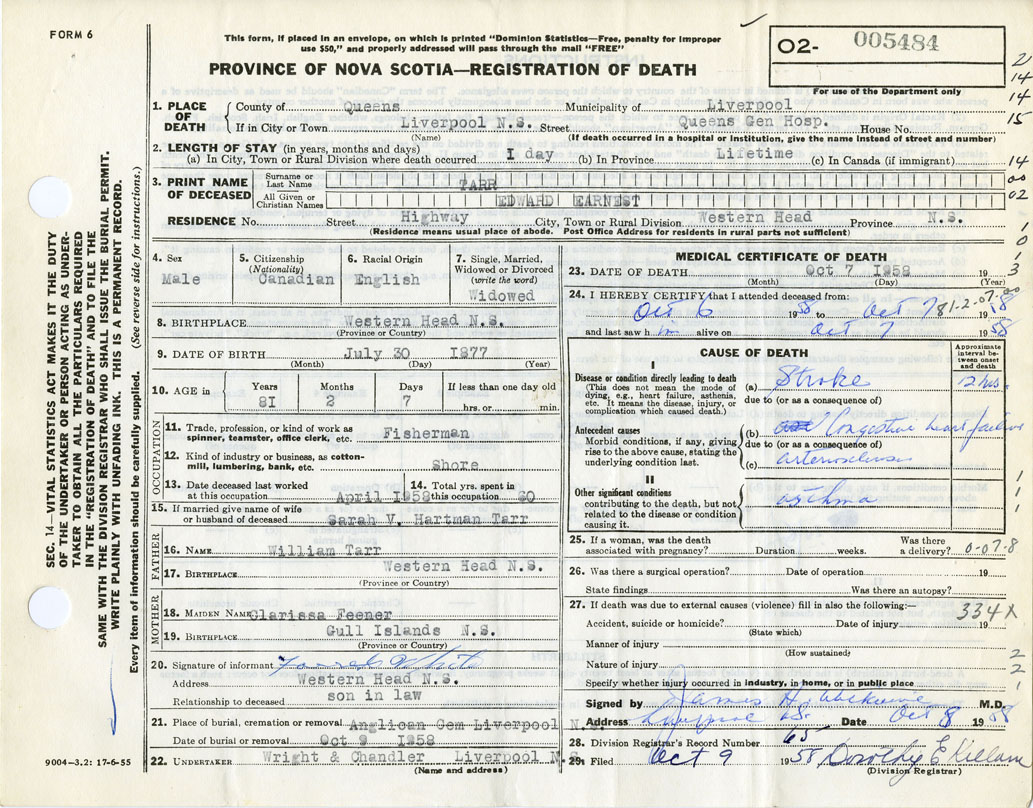 FORM 6
This form, if placed in an envelope, on which is printed "Dominion Statistics—Free, penalty for improper
use $50," and properly addressed will pass through the mail "FREE"
PROVINCE OF NOVA SCOTIA—REGISTRATION OF DEATH
O2- 005484
For use of the Department only
1. PLACE OF DEATH
County of Queens Municipality of Liverpool
If in City or Town Liverpool N.S. Street Queens Gen Hosp. House No.
(Name) (If death occurred in a hospital or institution, give the name instead of street and number)
2. LENGTH OF STAY (in years, months and days)
(a) In City, Town or Rural Division where death occurred I day (b) In Province Lifetime (c) In Canada (if immigrant)
3. PRINT NAME OF DECEASED
Surname or Last Name TARR
All Given or Christian Names EDWARD EARNEST
RESIDENCE No. Street Highway City, Town or Rural Division Western Head Province N.S.
(Residence means usual place of abode. Post Office Address for residents in rural parts not sufficient)
4. Sex Male
5. Citizenship (Nationality) Canadian
6. Racial Origin English
7. Single, Married, Widowed or Divorced (write the word) Widowed
8. BIRTHPLACE Western Head N.S.
(Province or Country)
9. DATE OF BIRTH July 30 I877
(Month) (Day) (Year)
10. AGE in Years Months Days If less than one day old
8I 2 7 hrs. or min.
OCCUPATION
11. Trade, profession, or kind of work as spinner, teamster, office clerk, etc. Fisherman
12. Kind of industry or business, as cotton-mill, lumbering, bank, etc. Shore
13. Date deceased last worked at this occupation April I958
14. Total yrs. spent in this occupation 60
15. If married give name of wife or husband of deceased Sarah V. Hartman Tarr
FATHER
16. NAME William Tarr
17. BIRTHPLACE Western Head N.S.
(Province or Country)
MOTHER
18. MAIDEN NAME Clarissa Feener
19. BIRTHPLACE Gull Islands N.S.
(Province or Country)
20. Signature of informant White
Address Western Head N.S.
Relationship to deceased son in law
21. Place of burial, cremation or removal Anglican Cem Liverpool N.S.
Date of burial or removal Oct 9 I958
22. UNDERTAKER Wright & Chandler Liverpool N.S.
(Name and address)
MEDICAL CERTIFICATE OF DEATH
23. DATE OF DEATH Oct 7 I958 19
(Month) (Day) (Year)
24. I HEREBY CERTIFY that I attended deceased from:
Oct 6 1958 to Oct 7 1958
81-2-07-00
and last saw h m alive on Oct 7 1958
CAUSE OF DEATH
Approximate interval between onset and death
I
Disease or condition directly leading to death
(This does not mean the mode of dying, e.g., heart failure, asthenia, etc. It means the disease, injury, or complication which caused death.)
(a) Stroke 2 hrs.
due to (or as a consequence of)
Antecedent causes
Morbid conditions, if any, giving rise to the above cause, stating the underlying condition last.
(b) Congestive heart failure
due to (or as a consequence of)
(c) arteriosclerosis
II
Other significant conditions
contributing to the death, but not related to the disease or condition causing it.
asthma
25. If a woman, was the death associated with pregnancy? Duration weeks. Was there a delivery? 0-07-8
26. Was there a surgical operation? Date of operation 19
State findings Was there an autopsy?
27. If death was due to external causes (violence) fill in also the following:—
334X
Accident, suicide or homicide? Date of injury 19
(State which)
Manner of injury
(How sustained)
Nature of injury
Specify whether injury occurred in industry, in home, or in public place
Signed by James H. M.D.
Address Liverpool N.S. Date Oct 8 1958
28. Division Registrar's Record Number 65
29. Filed Oct 9 1958 Dorothy E Killam
(Division Registrar)
SEC. 14—VITAL STATISTICS ACT MAKES IT THE DUTY
OF THE UNDERTAKER OR PERSON ACTING AS UNDER-
TAKER TO OBTAIN ALL THE PARTICULARS REQUIRED
IN THE "REGISTRATION OF DEATH" AND TO FILE THE
SAME WITH THE DIVISION REGISTRAR WHO SHALL ISSUE THE BURIAL PERMIT.
WRITE PLAINLY WITH UNFADING INK. THIS IS A PERMANENT RECORD.
Every item of information should be carefully supplied. (See reverse side for instructions.)
9004—3.2: 17-6-55
2
14
14
15
14
00
02
1
0
1
3
1
1
1
2
2
1